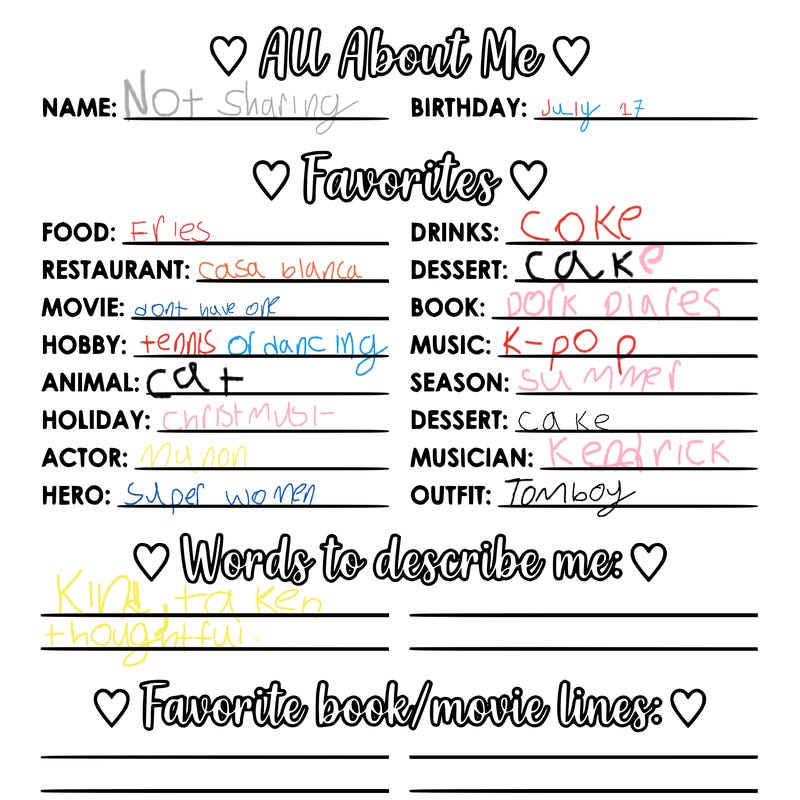 All About Me
NAME: Not Sharing BIRTHDAY: July 17
Favorites
FOOD: Fries DRINKS: COKe
RESTAURANT: casa blanca DESSERT: cake
MOVIE: dont have one BOOK: Dork Diares
HOBBY: tennis or dancing MUSIC: K-pop
ANIMAL: cat SEASON: summer
HOLIDAY: DESSERT: cake
ACTOR: Manon MUSICIAN: Kendrick
HERO: Super women OUTFIT: Tomboy
Words to describe me:
Kind, taken
thoughtful.
Favorite book/movie lines: